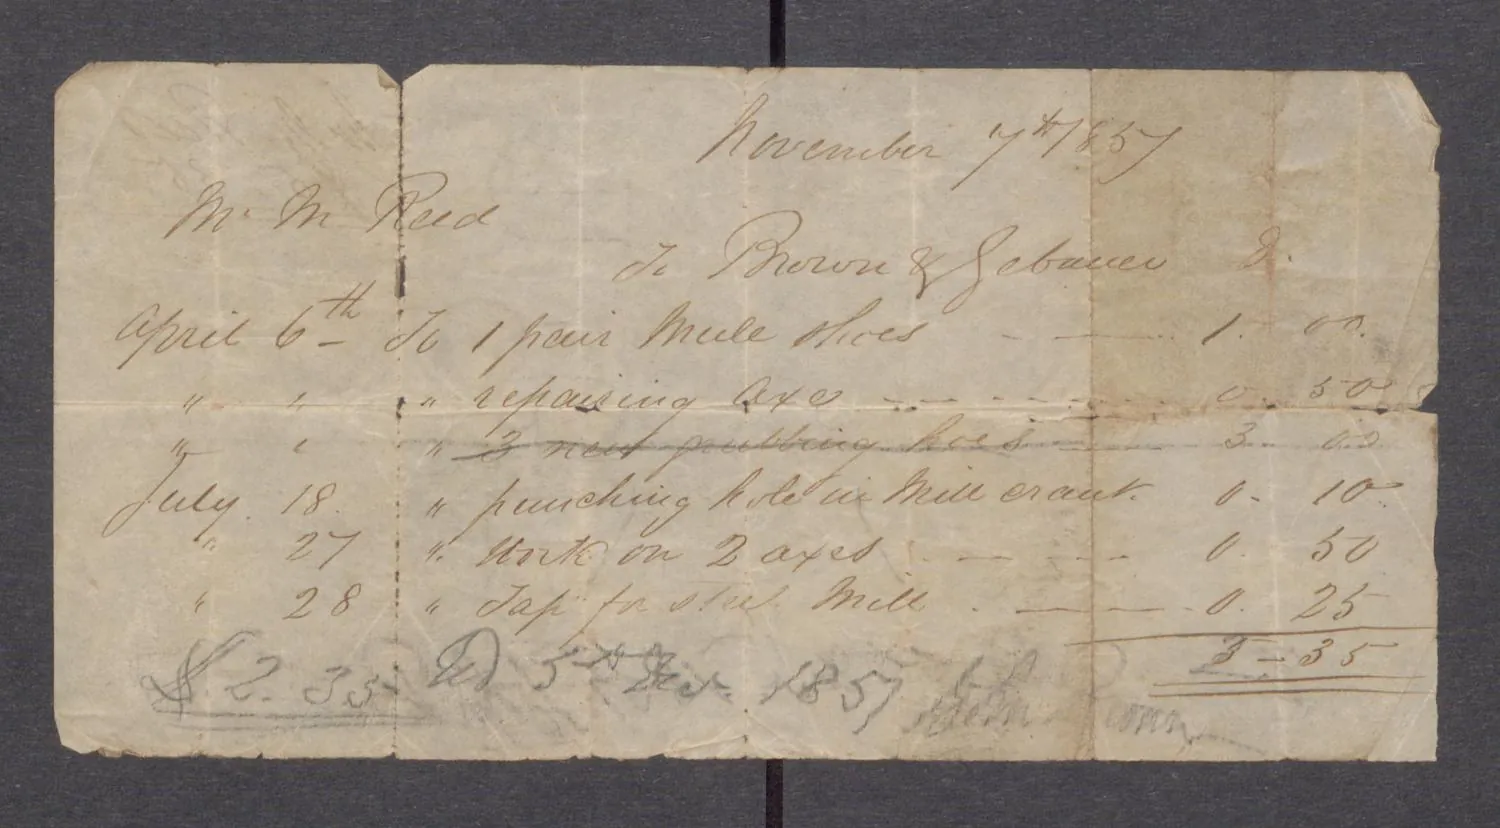 November 7th 1857
Mr M Reed
To Brown & Gebauer D.
April 6th To 1 pair Mule Shoes 1. 00.
" " " repairing axes 0. 50
" " " 3 new grubbing hoes 3 00
July. 18. " punching hole in Mill crank. 0. 10
" 27 ". Work on 2 axes 0. 50
" 28 " Tap for steel Mill 0. 25
35
$2.35 5th 1857